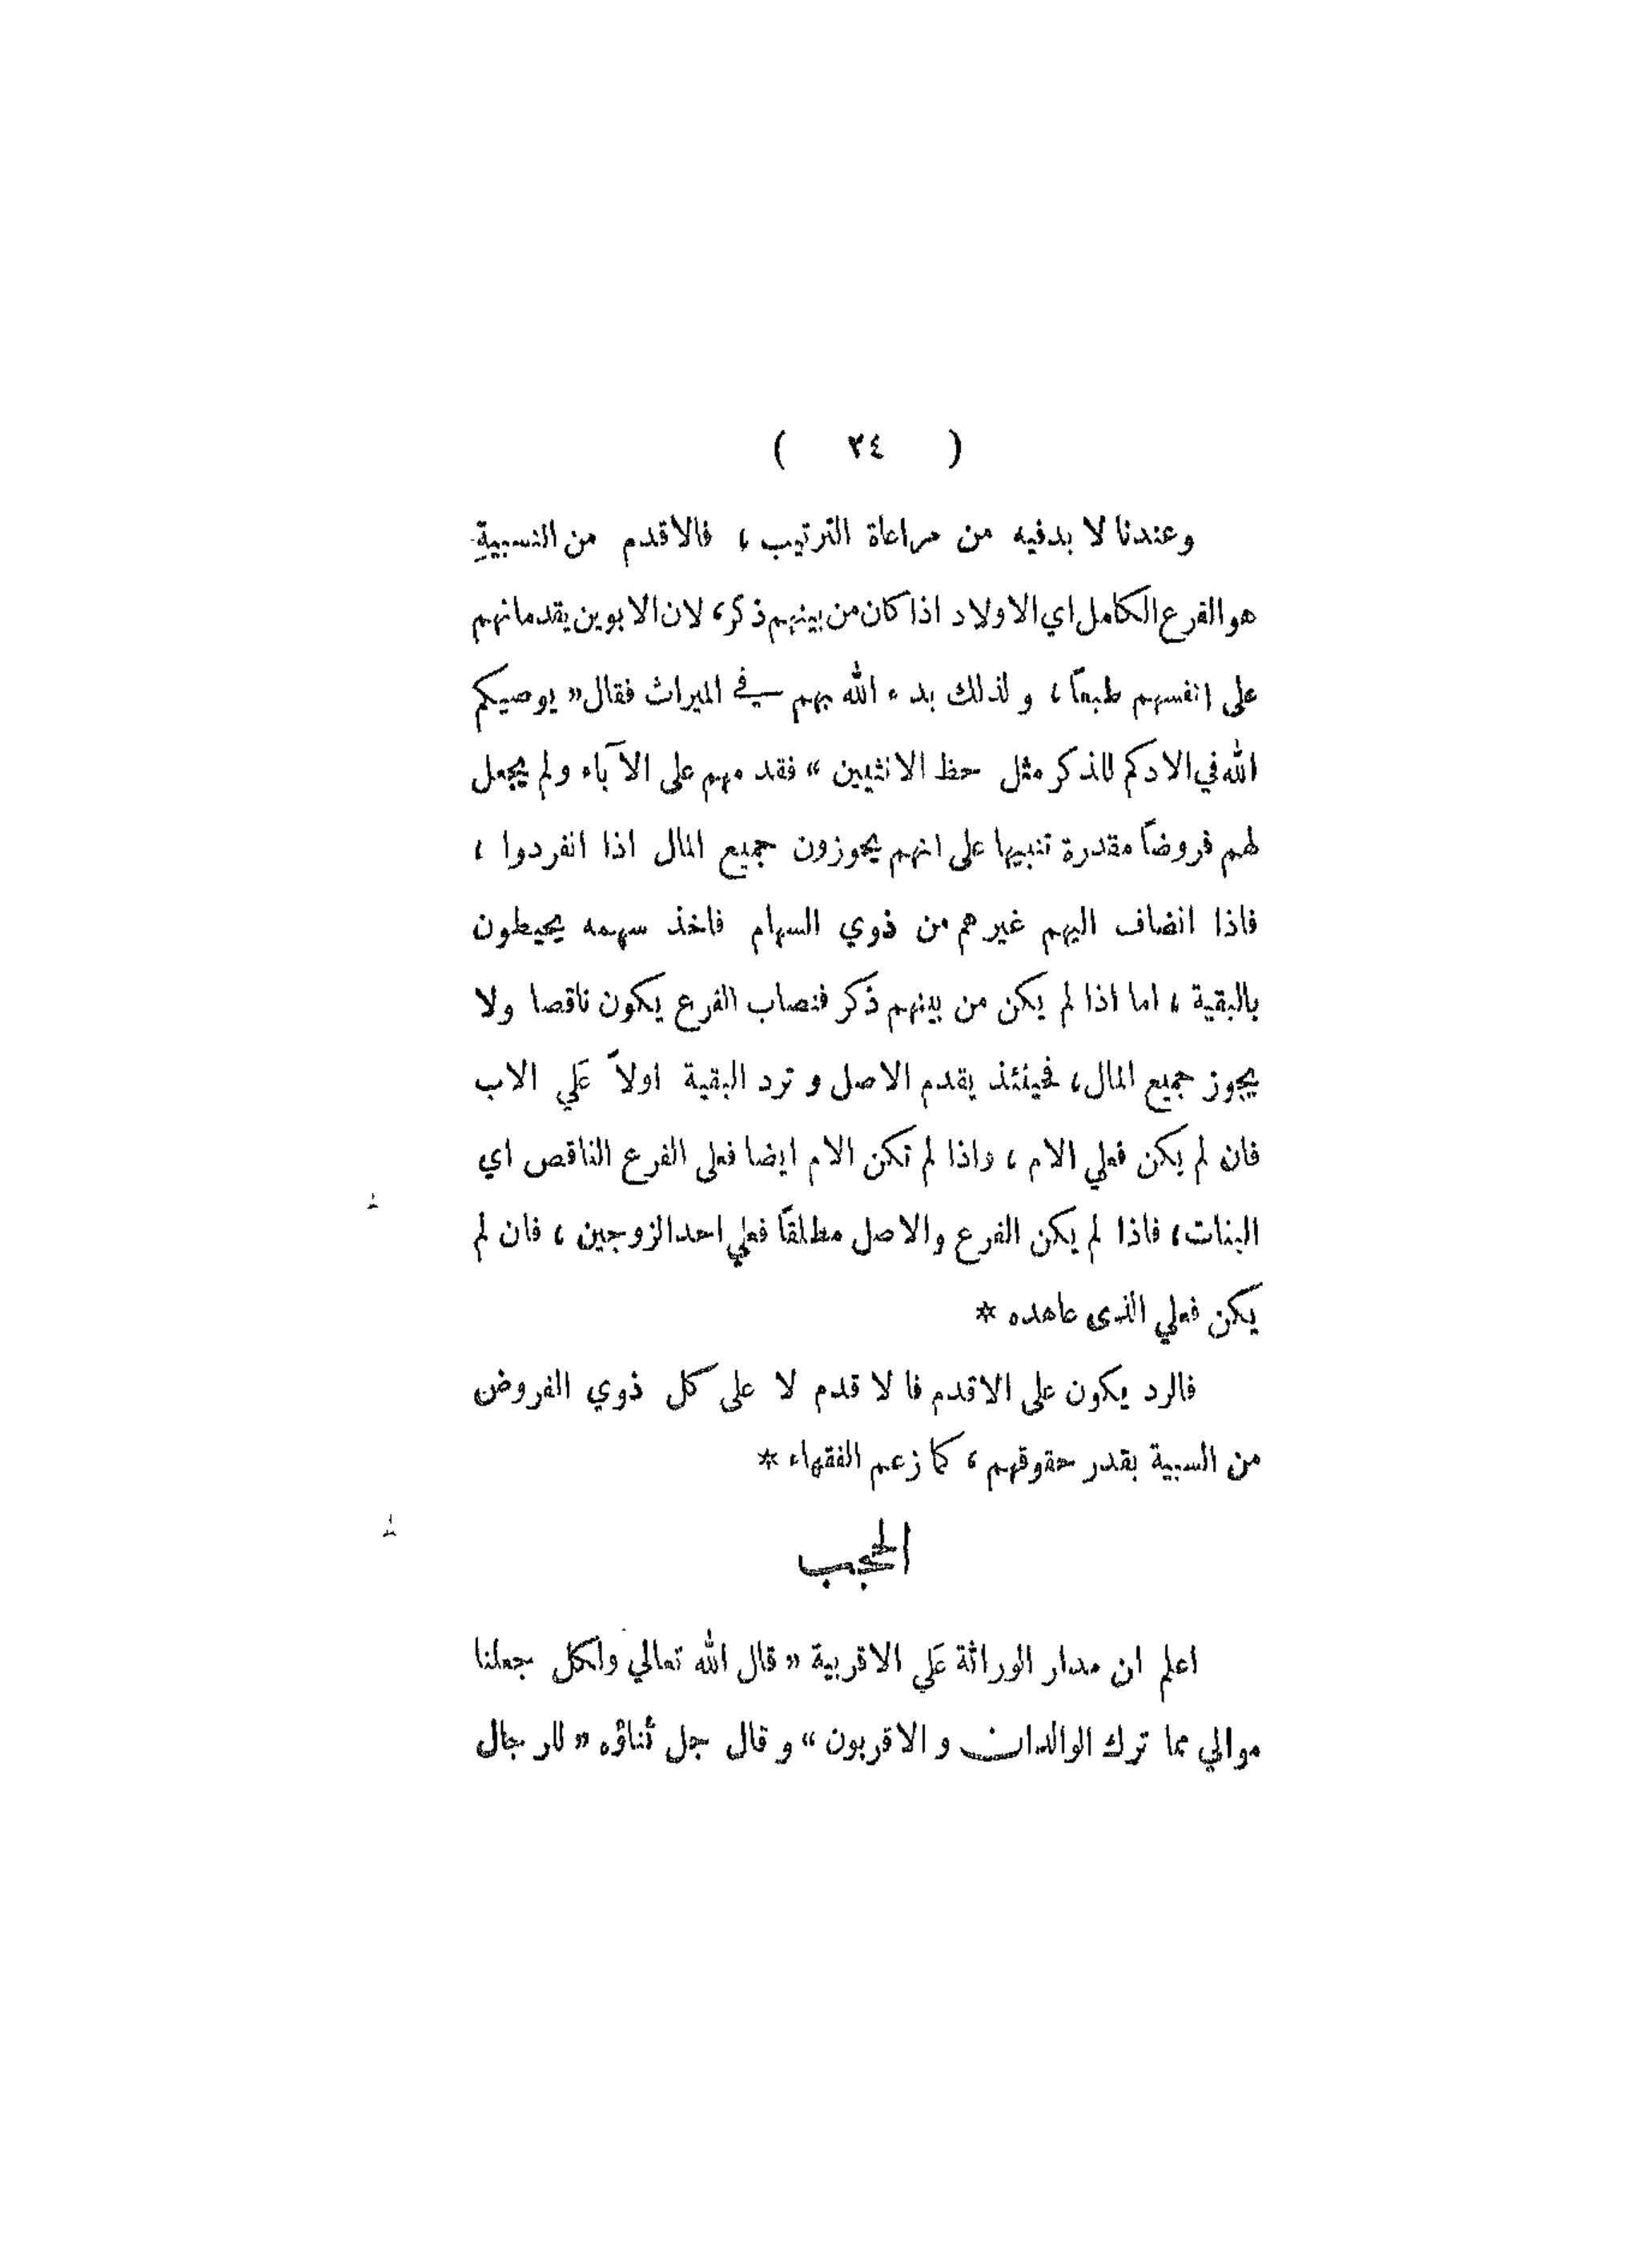 ( ٢٤ )
وعندنا لا بدفيه من مراعاة الترتيب ، فالاقدم من النسبيةِ
هو الفرع الكامل اي الاولاد اذا كان من بينهم ذكر، لان الابوين يقدمانهم
على انفسهم طبعاً ، و لذلك بدء الله بهم في الميراث فقال « يوصيكم
الله في الادكم للذكر مثل حظ الانثيين » فقد مهم على الآباء ولم يجعل
لهم فروضاً مقدرة تنبيها على انهم يحوزون جميع المال اذا انفردوا ،
فاذا انضاف اليهم غيرهم من ذوي السهام فاخذ سهمه يحيطون
بالبقية ، اما اذا لم يكن من بينهم ذكر فنصاب الفرع يكون ناقصا ولا
يجوز جميع المال ، فحينئذ يقدم الاصل و ترد البقية اولاً عَلي الاب
فان لم يكن فعلي الام ، واذا لم تكن الام ايضا فعلى الفرع الناقص اي
البنات ، فاذا لم يكن الفرع والاصل مطلقاً فعلي احد الزوجين ، فان لم
يكن فعلي الذى عاهده *
فالرد يكون على الاقدم فا لا قدم لا على كل ذوي الفروض
من السبية بقدر حقوقهم ، كما زعم الفقهاء *
الحجب
اعلم ان مدار الوراثة عَلي الاقربية « قال الله تعالي ولكل جعلنا
موالي مما ترك الوالدان و الاقربون » و قال جل ثناؤه « للر جال